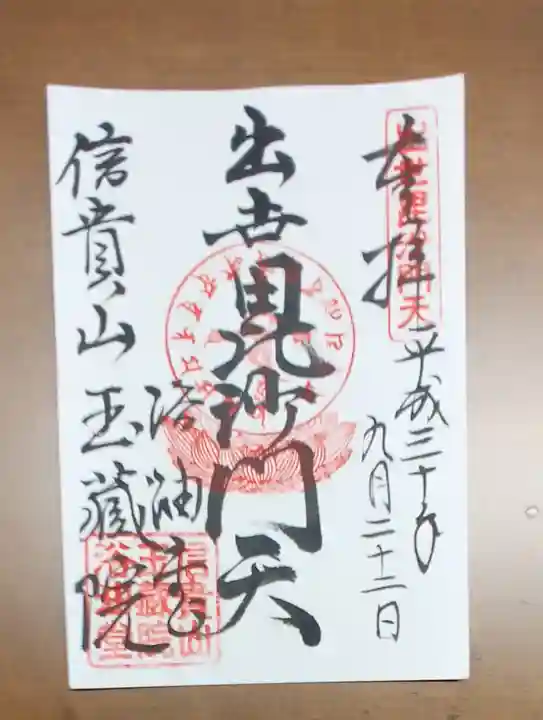 奉拝
平成三十年
九月二十二日
出世毘沙門天
出世毘沙門天
浴油堂
信貴山
玉蔵院
信貴山
玉蔵院
浴油堂